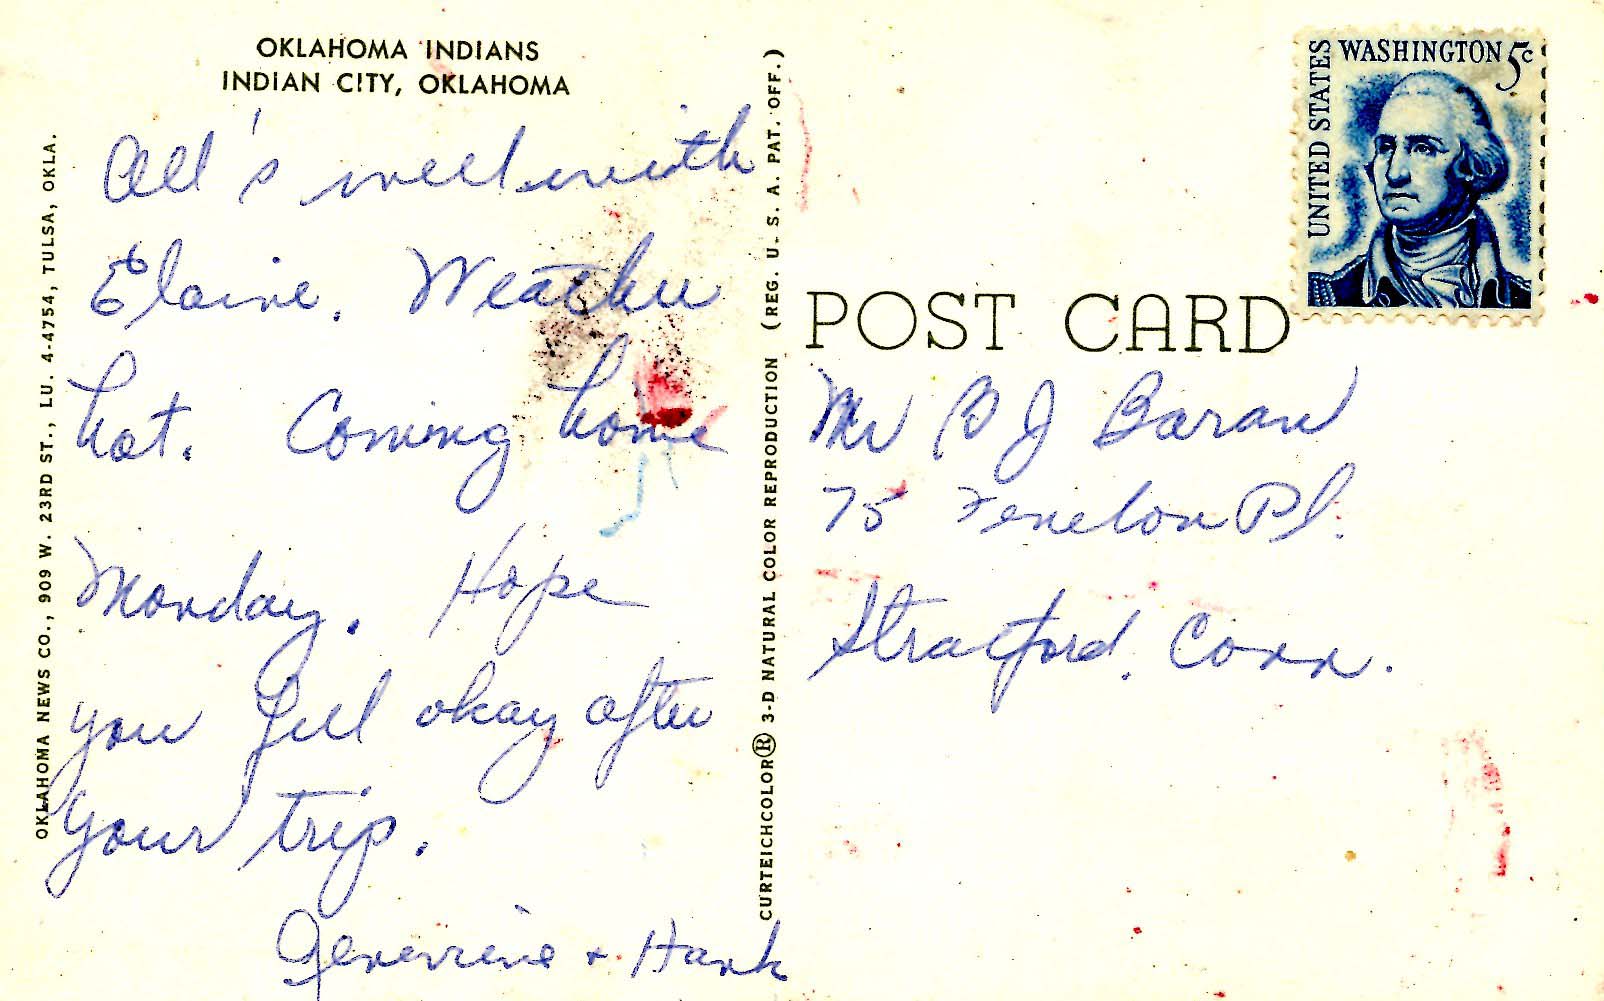 OKLAHOMA INDIANS
INDIAN CITY, OKLAHOMA
All's well with
Elaine. Weather
hot. Coming home
Monday. Hope
you feel okay after
your trip.
Genevieve + Hank
OKLAHOMA NEWS CO., 909 W. 23RD ST., LU. 4-4754, TULSA, OKLA.
CURTEICHCOLOR® 3-D NATURAL COLOR REPRODUCTION (REG. U. S. A. PAT. OFF.)
UNITED STATES
WASHINGTON 5c
POST CARD
Mr B J Baran
75 Fenelon Pl.
Stratford, Conn.